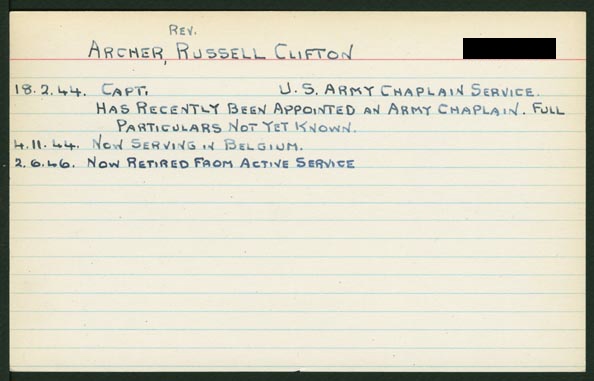 REV.
ARCHER, RUSSELL CLIFTON
18.2.44. CAPT. U.S. ARMY CHAPLAIN SERVICE.
HAS RECENTLY BEEN APPOINTED AN ARMY CHAPLAIN. FULL
PARTICULARS NOT YET KNOWN.
4.11.44. NOW SERVING IN BELGIUM.
2.6.46. NOW RETIRED FROM ACTIVE SERVICE